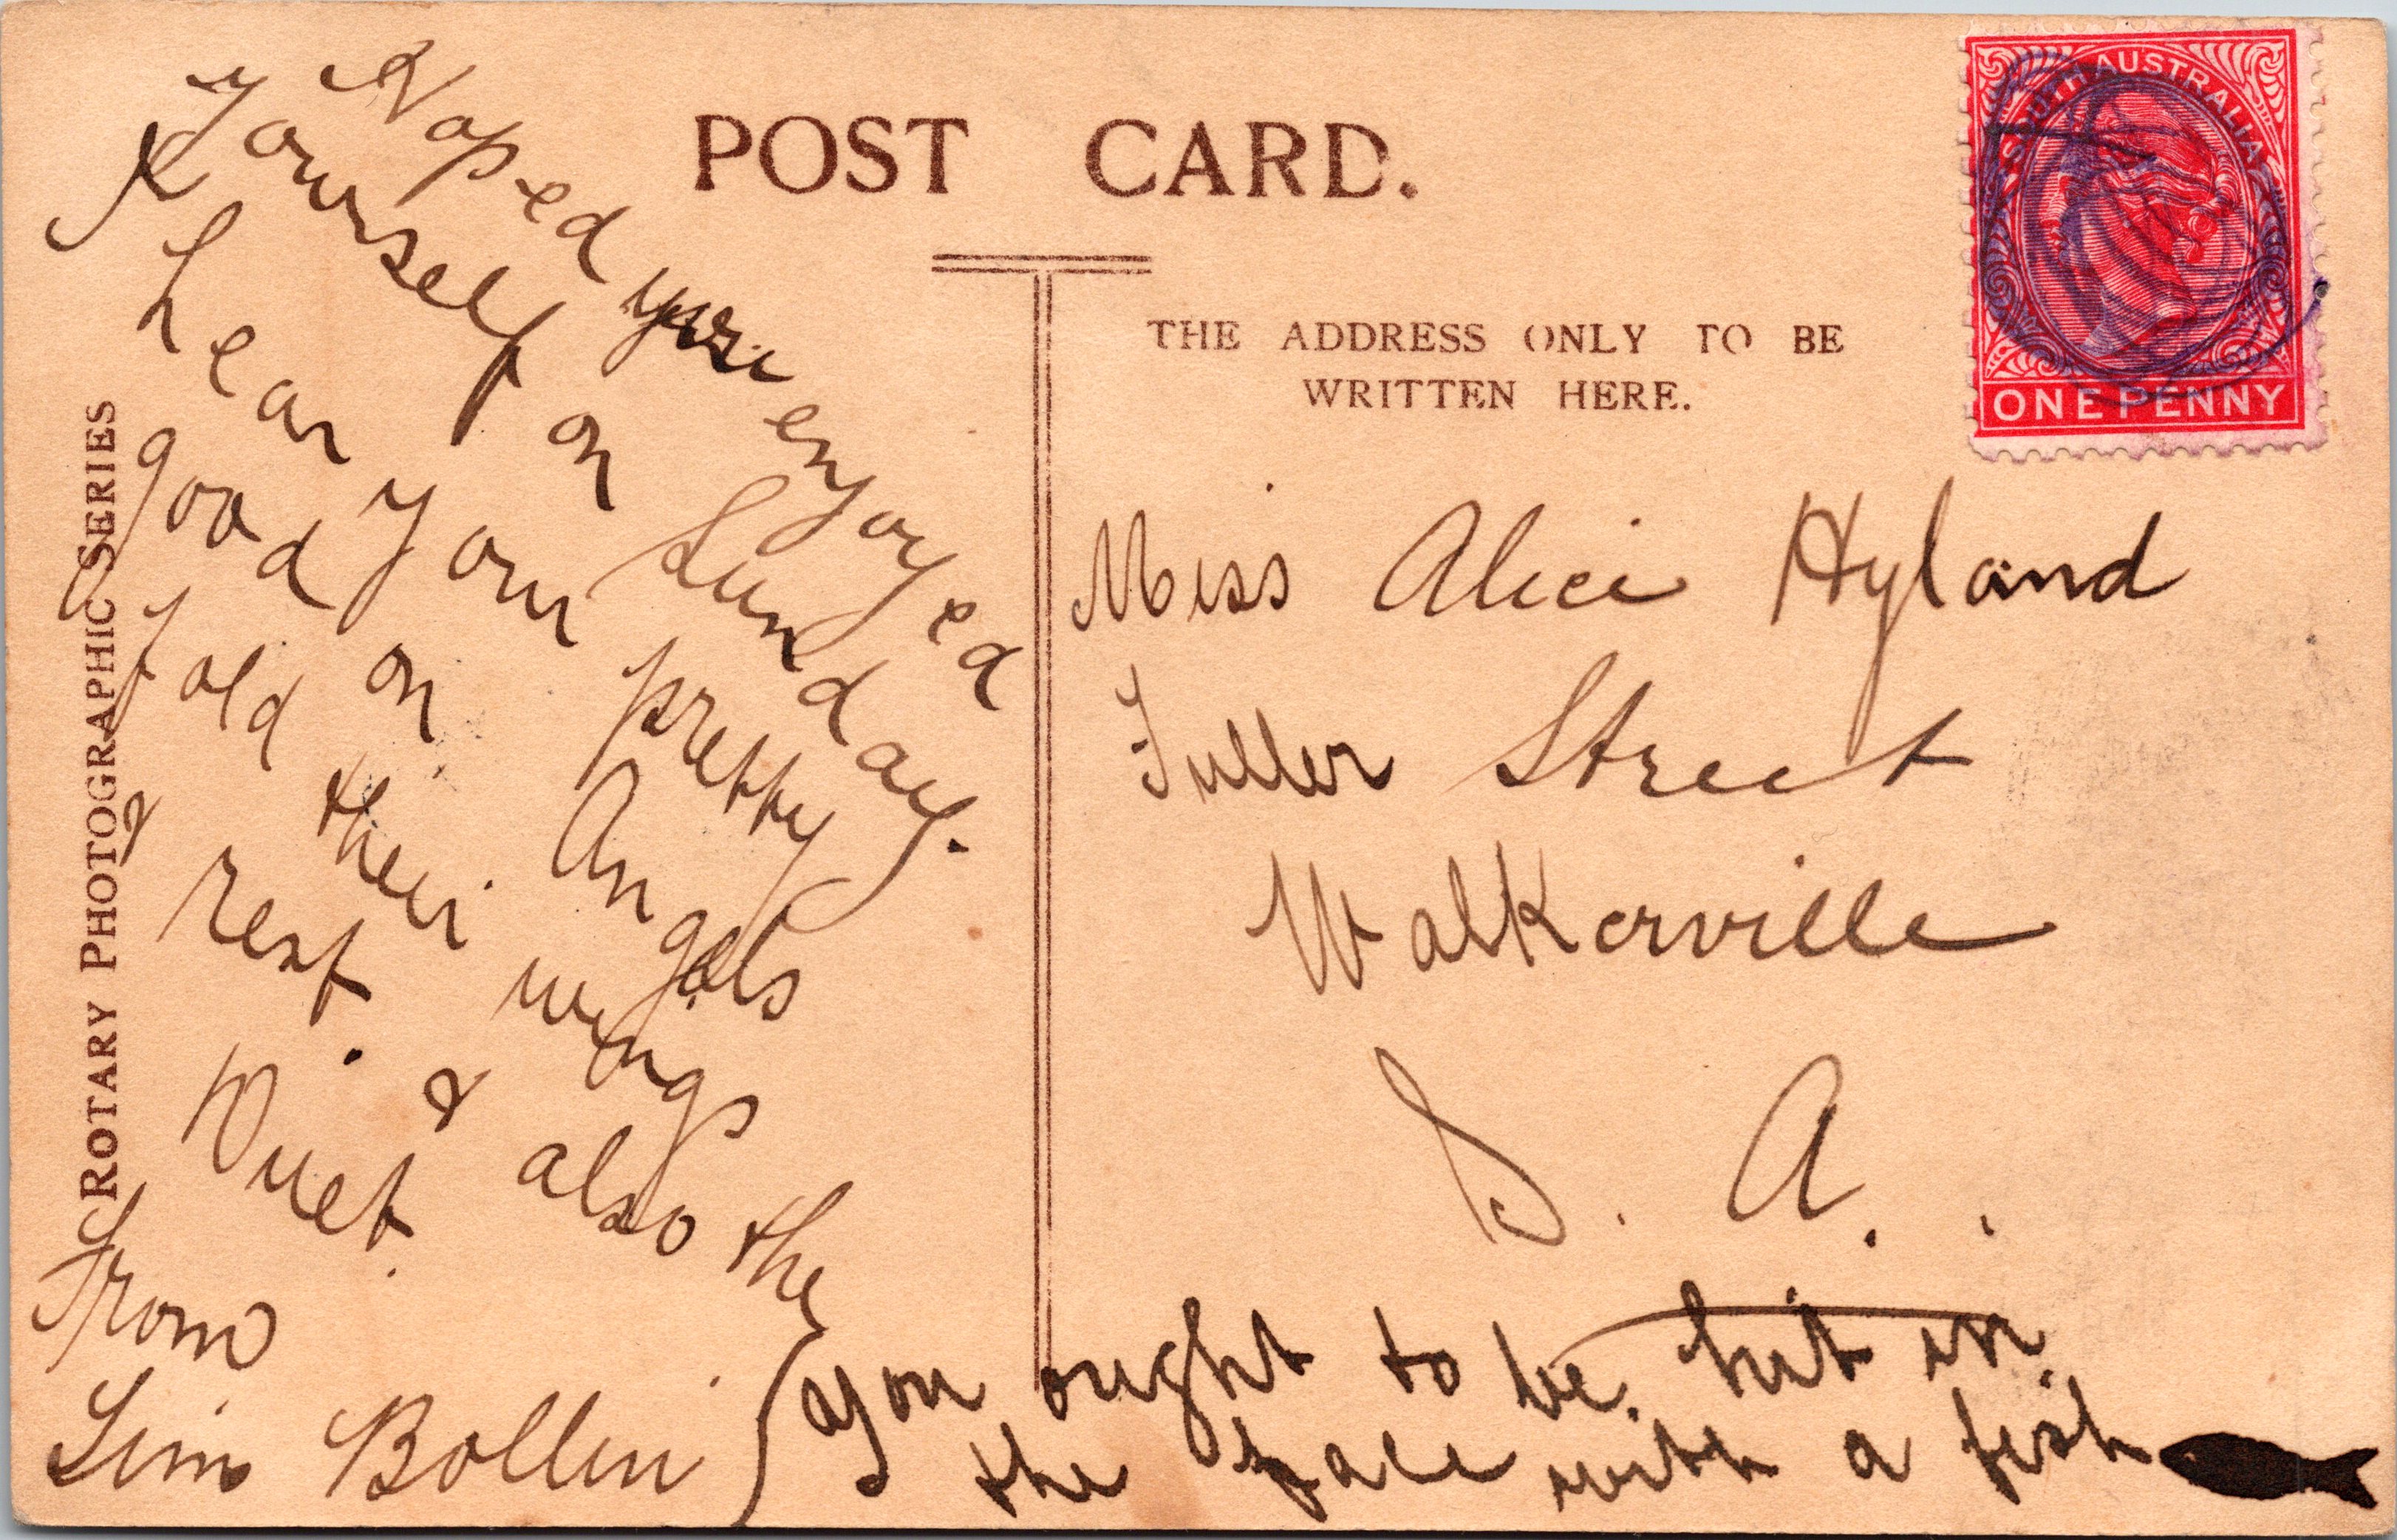 POST CARD.
THE ADDRESS ONLY TO BE
WRITTEN HERE.
SOUTH AUSTRALIA
ONE PENNY
ROTARY PHOTOGRAPHIC SERIES
Hoped you enjoyed
yourself on Sunday.
I hear your pretty
good on Angels
fold their wings
& rest. & also the
Duet.
From
Bollen
Miss Alice Hyland
Fuller Street
Walkerville
S. A.
you ought to be hit in
the face with a fish